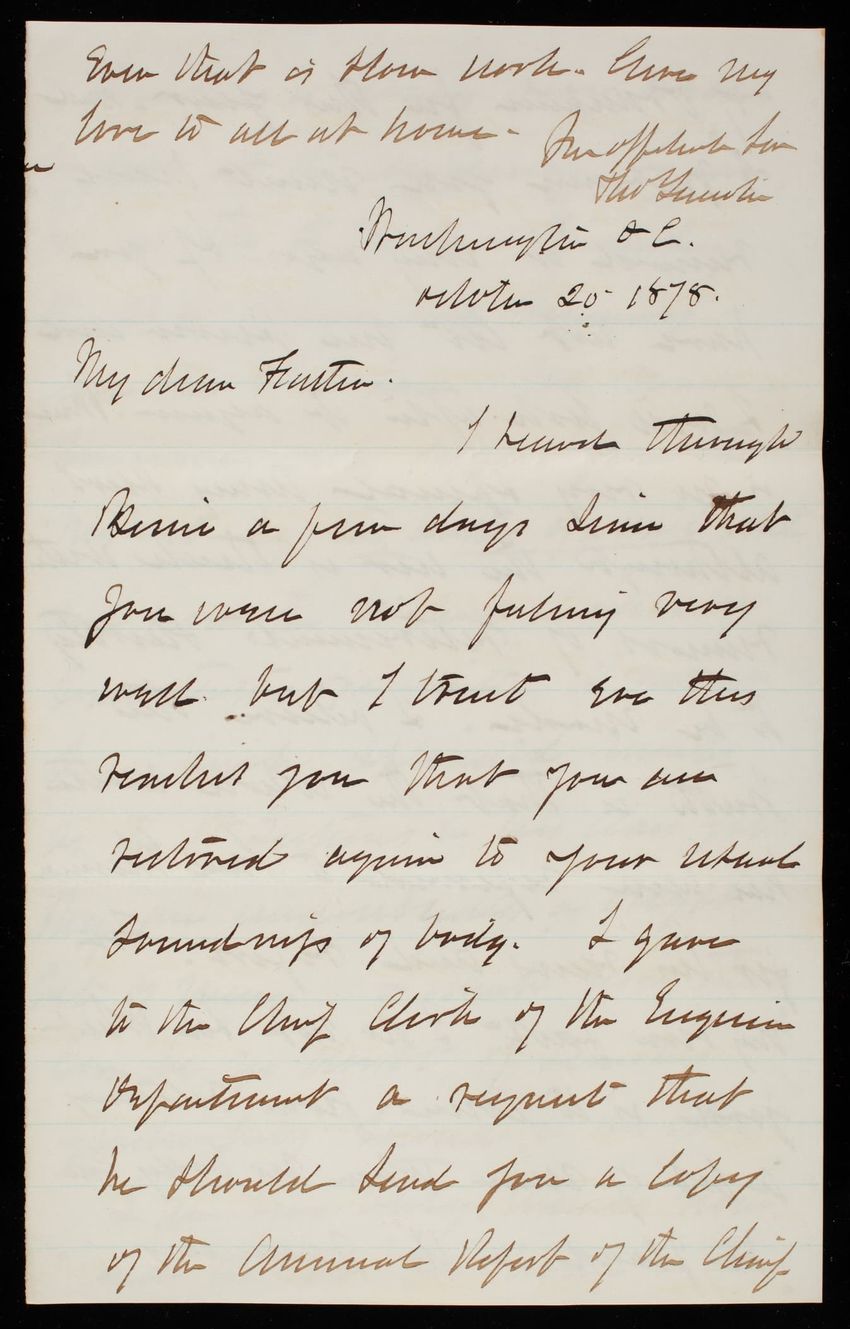 Even that is slow work. Give my
love to all at home.
Yr affectionate Son
Washington D C.
October 20 1878.
My dear Father.
I heard through
Bernie a few days since that
you were not feeling very
well. but I trust ere this
reaches you that you are
restored again to your usual
soundness of body. I gave
to the Chief Clerk of the Engineer
Department a request that
he should send you a copy
of the Annual Report of the Chief